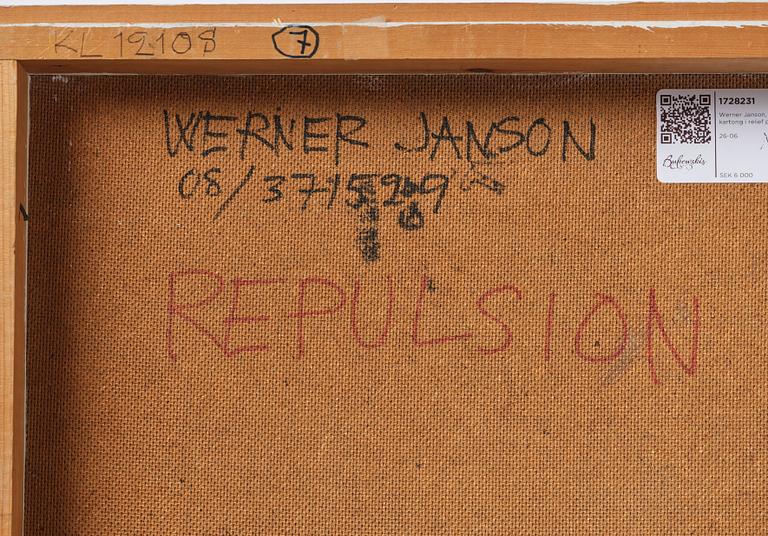 KL 12108 7
WERNER JANSON
08/3715
REPULSION
1728231
Werner Janson,
kartong i relief
26-06
Bukowskis
SEK 6 000